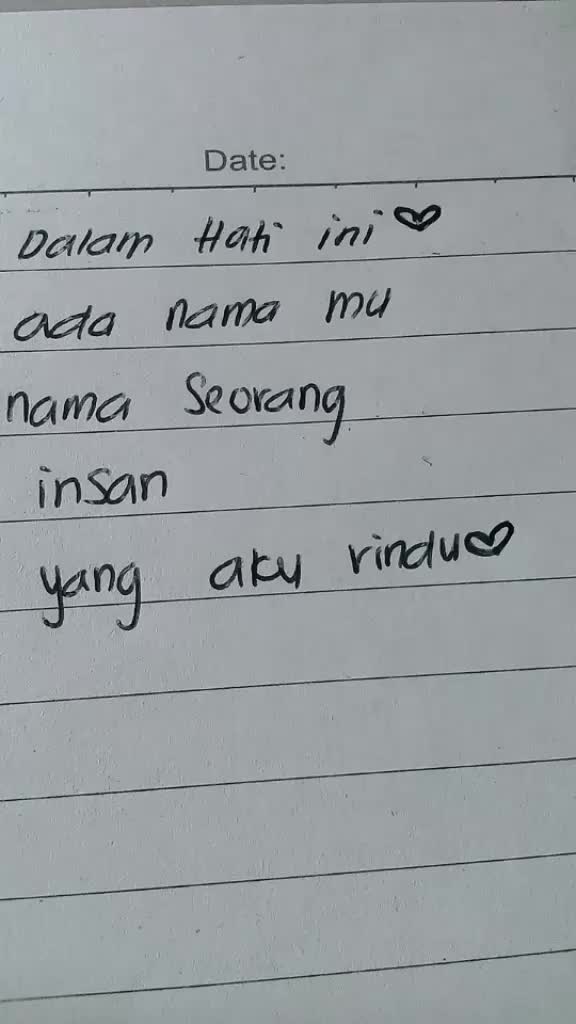 Date:
Dalam Hati ini ♡
ada nama mu
nama Seorang
insan
yang aku rindu♡